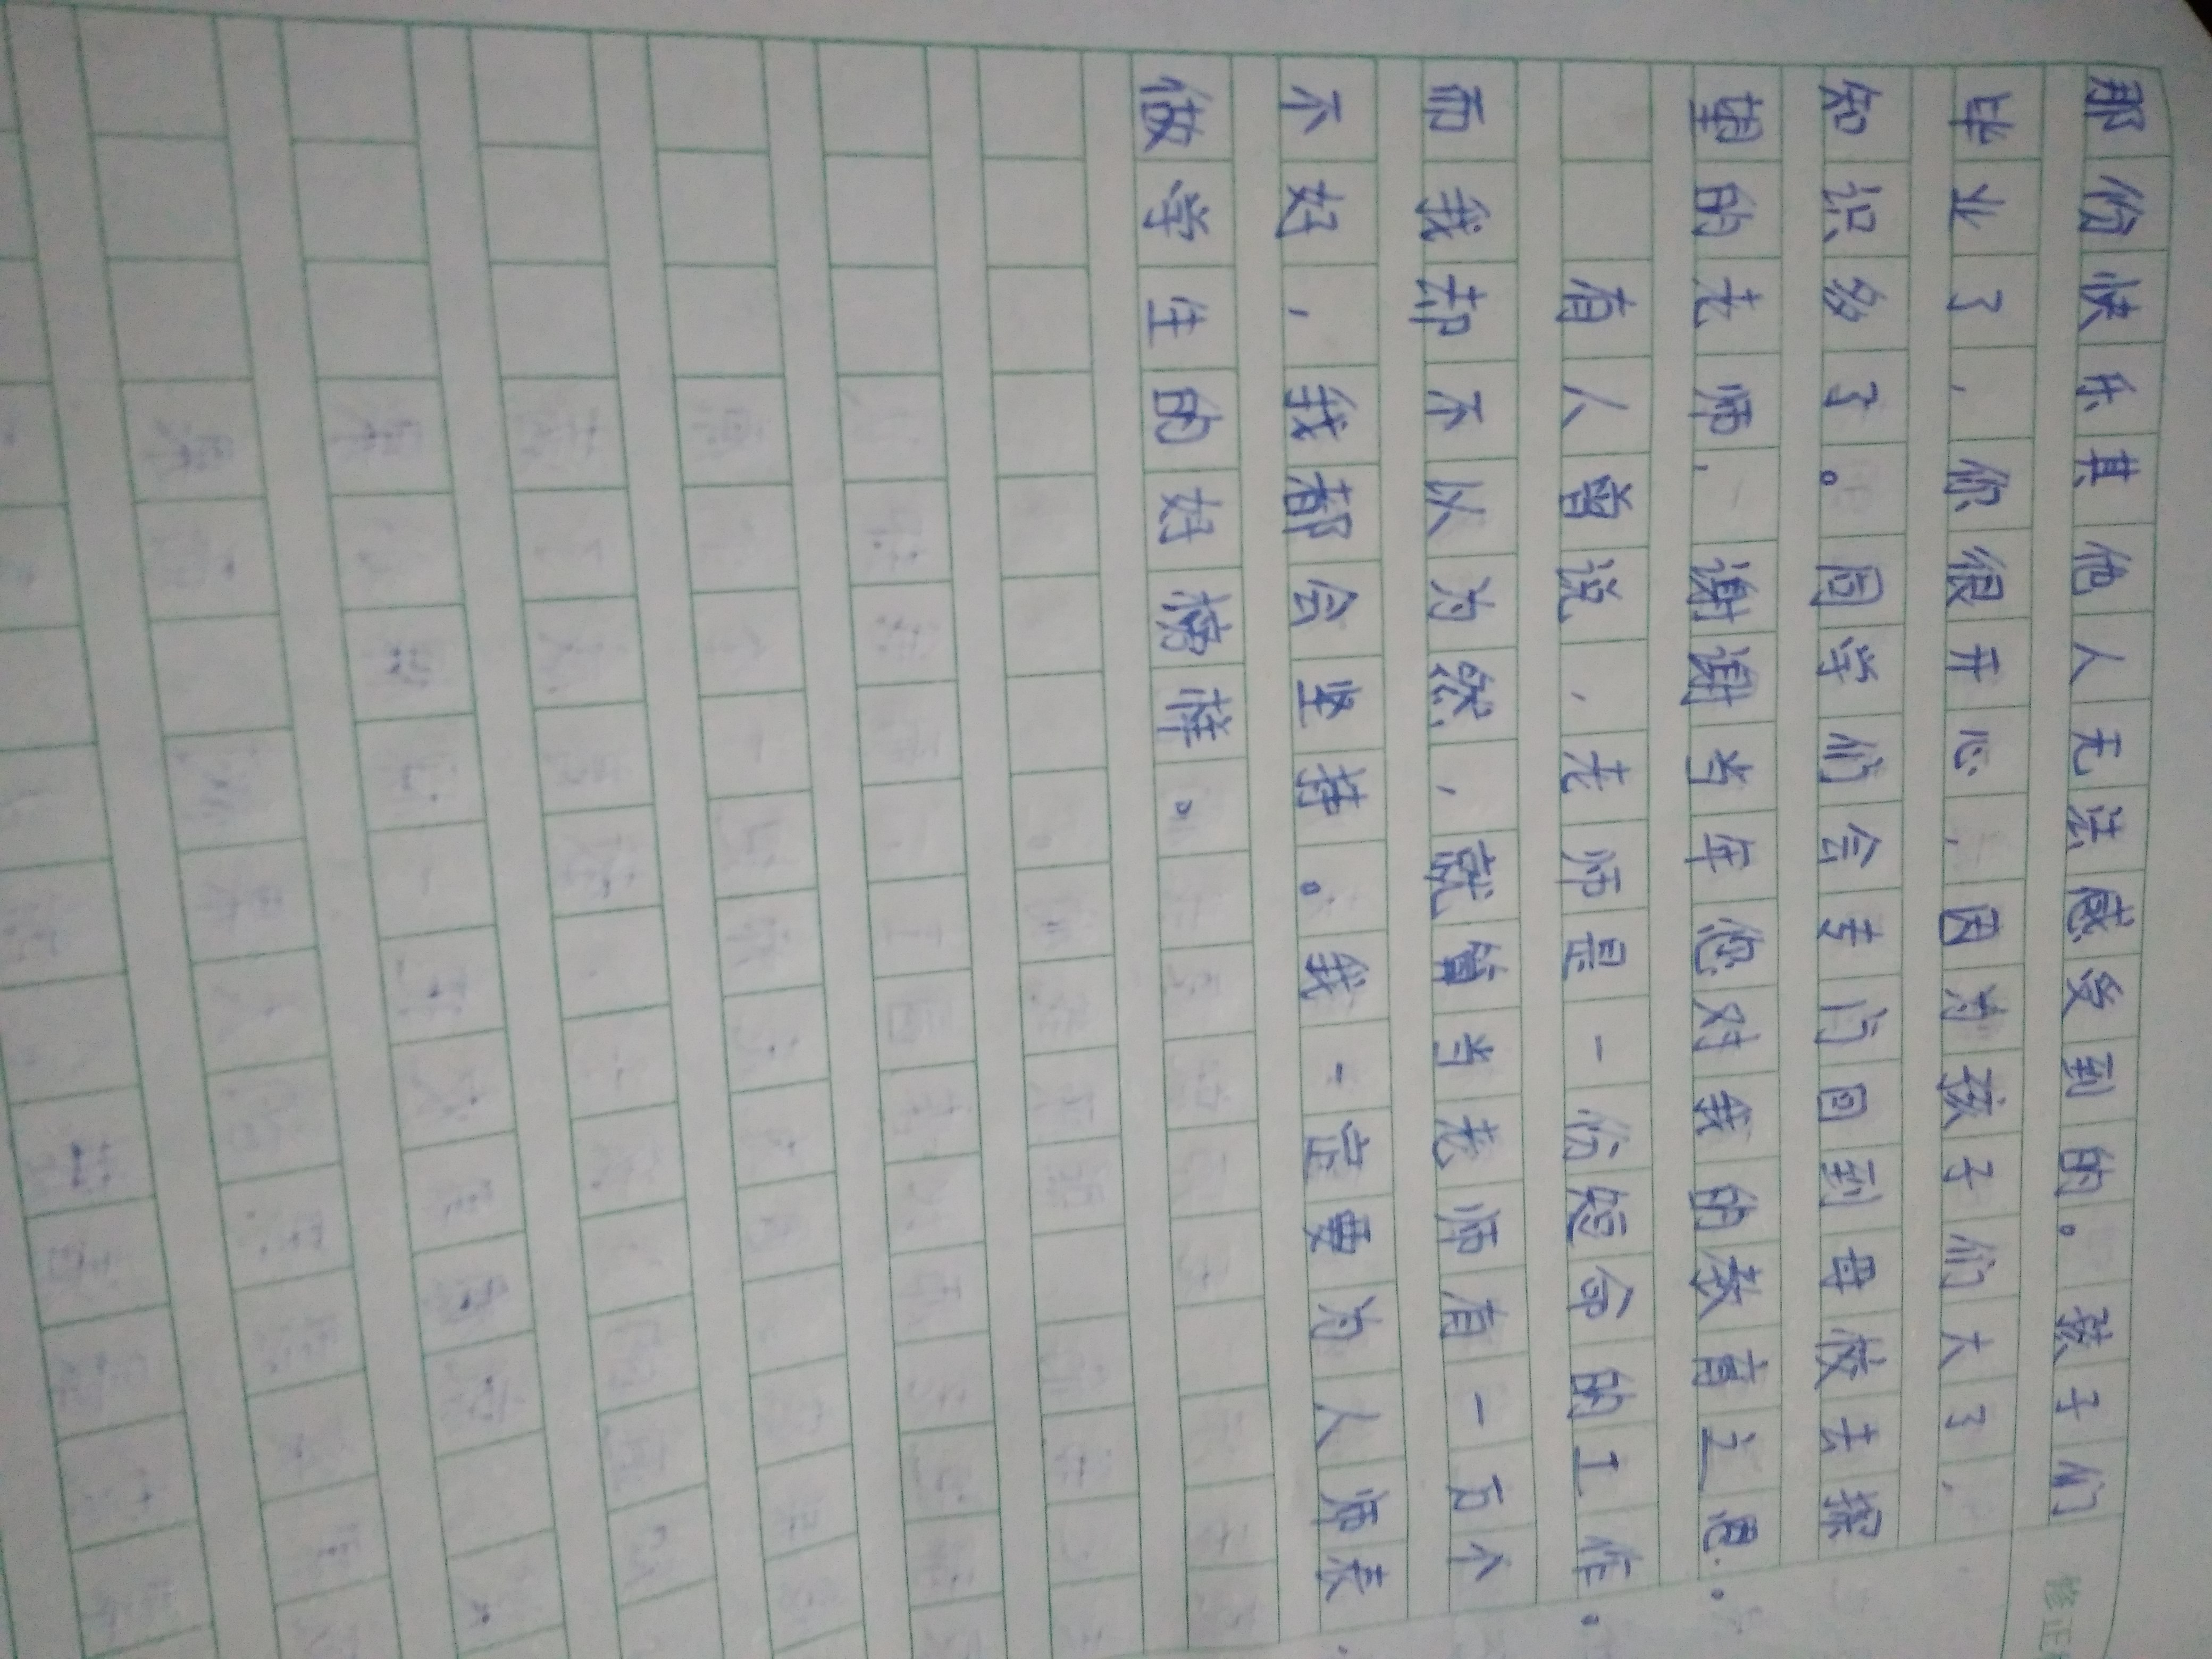 那份快乐其他人无法感受到的。孩子们
毕业了，你很开心，因为孩子们大了，
知识多了。同学们会专门回到母校去探
望的老师，谢谢当年您对我的教育之恩。
有人曾说，老师是一份短命的工作。
而我却不以为然，就算当老师有一万个
不好，我都会坚持。我一定要为人师表，
做学生的好榜样。
修正